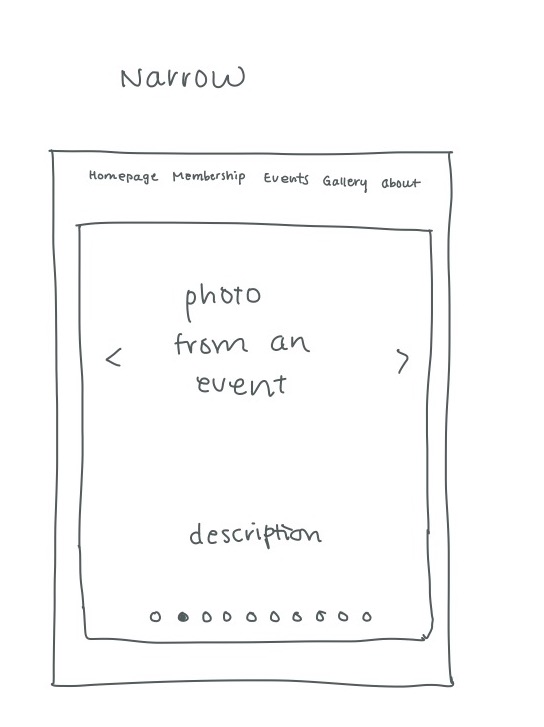 Narrow
Homepage Membership Events Gallery about
photo
from an
< >
event
description